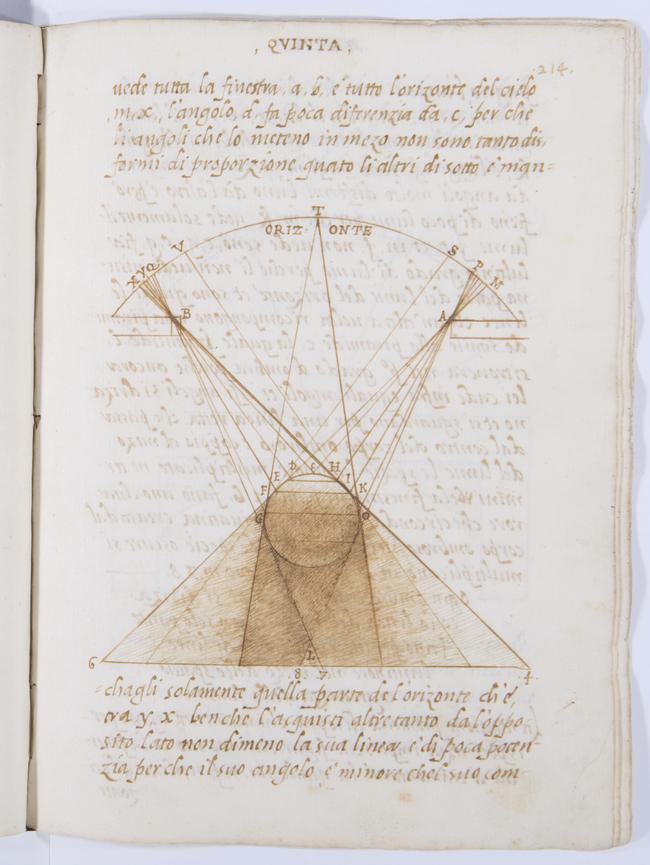 , QVINTA ,
.214.
uede tutta la finestra, a, b, è tutto l'orizonte del cielo
, m, x, l'angolo, d, fa poca diferenzia da, c, per che
li angoli che lo meteno in mezo non sono tanto dis,
formi di proporzione quato li altri di sotto è man=
T
ORIZ ONTE
V
S
X Y Q
P
M
B
A
D
E
H
I
F
K
G
O
L
6
8
7
4
=chagli solamente quella parte de l'orizonte ch'è
tra y, x, benche l'acquisti altretanto da l'oppo
sito lato non dimeno la sua linea, e' di poca poten
zia per che il suo angolo e' minore chel suo com